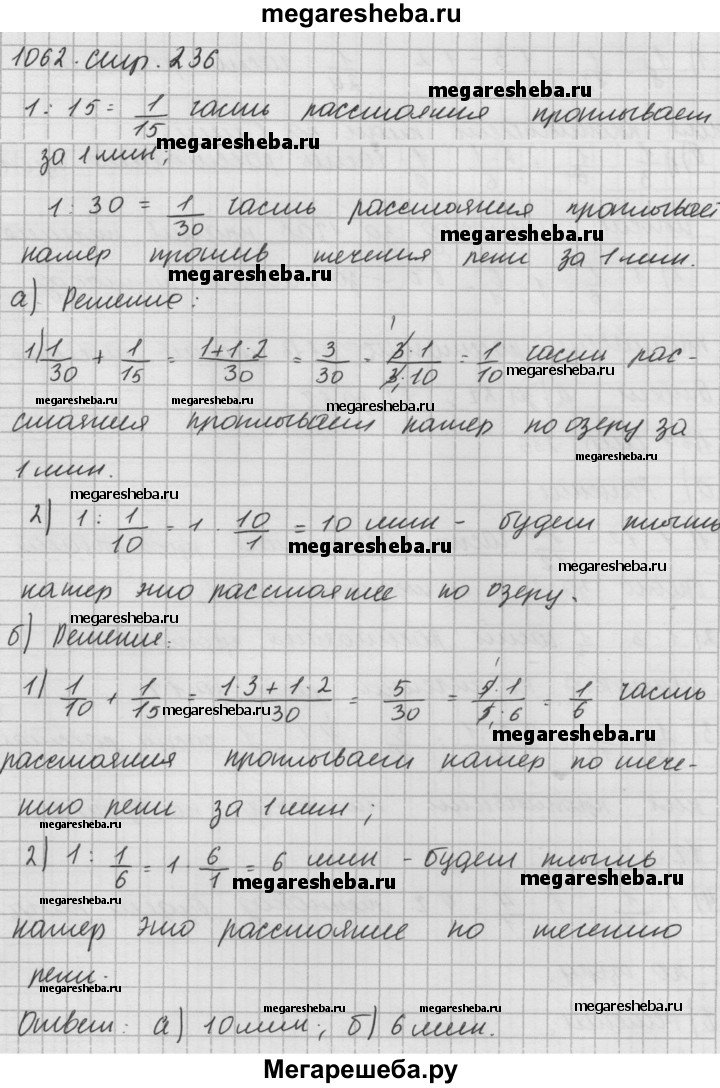 megaresheba.ru
1062. стр. 236
megaresheba.ru
1 : 15 = 1/15 часть расстояния проплывает
megaresheba.ru
за 1 мин;
1 : 30 = 1/30 часть расстояния проплывает
megaresheba.ru
катер против течения реки за 1 мин.
megaresheba.ru
а) Решение:
1) 1/30 + 1/15 = 1+1·2/30 = 3/30 = 3·1/3·10 = 1/10 части рас-
megaresheba.ru
megaresheba.ru megaresheba.ru megaresheba.ru
стояния проплывает катер по озеру за
1 мин.
megaresheba.ru
2) 1 : 1/10 = 1 · 10/1 = 10 мин - будет плыть
megaresheba.ru
megaresheba.ru
катер это расстояние по озеру.
megaresheba.ru
б) Решение:
1) 1/10 + 1/15 = 1·3+1·2/30 = 5/30 = 5·1/5·6 = 1/6 часть
megaresheba.ru
megaresheba.ru
расстояния проплывает катер по тече-
нию реки за 1 мин;
megaresheba.ru
2) 1 : 1/6 = 1 · 6/1 = 6 мин - будет плыть
megaresheba.ru megaresheba.ru
megaresheba.ru
катер это расстояние по течению
реки.
megaresheba.ru
megaresheba.ru megaresheba.ru megaresheba.ru
Ответ: а) 10 мин; б) 6 мин.
Мегарешеба.ру